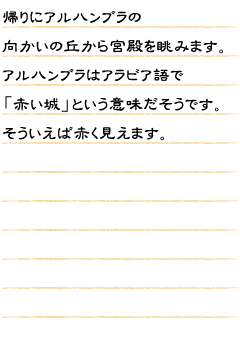 帰りにアルハンブラの
向かいの丘から宮殿を眺みます。
アルハンブラはアラビア語で
「赤い城」という意味だそうです。
そういえば赤く見えます。